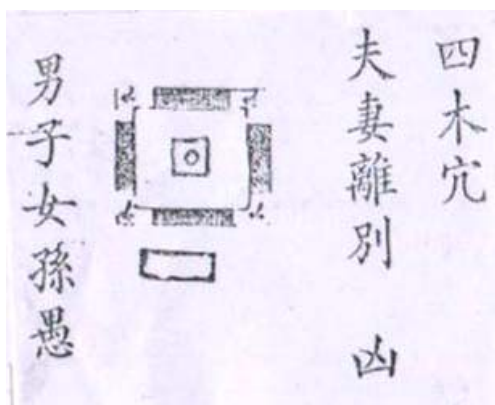 四木穴
夫妻離別　凶
男子女孫愚